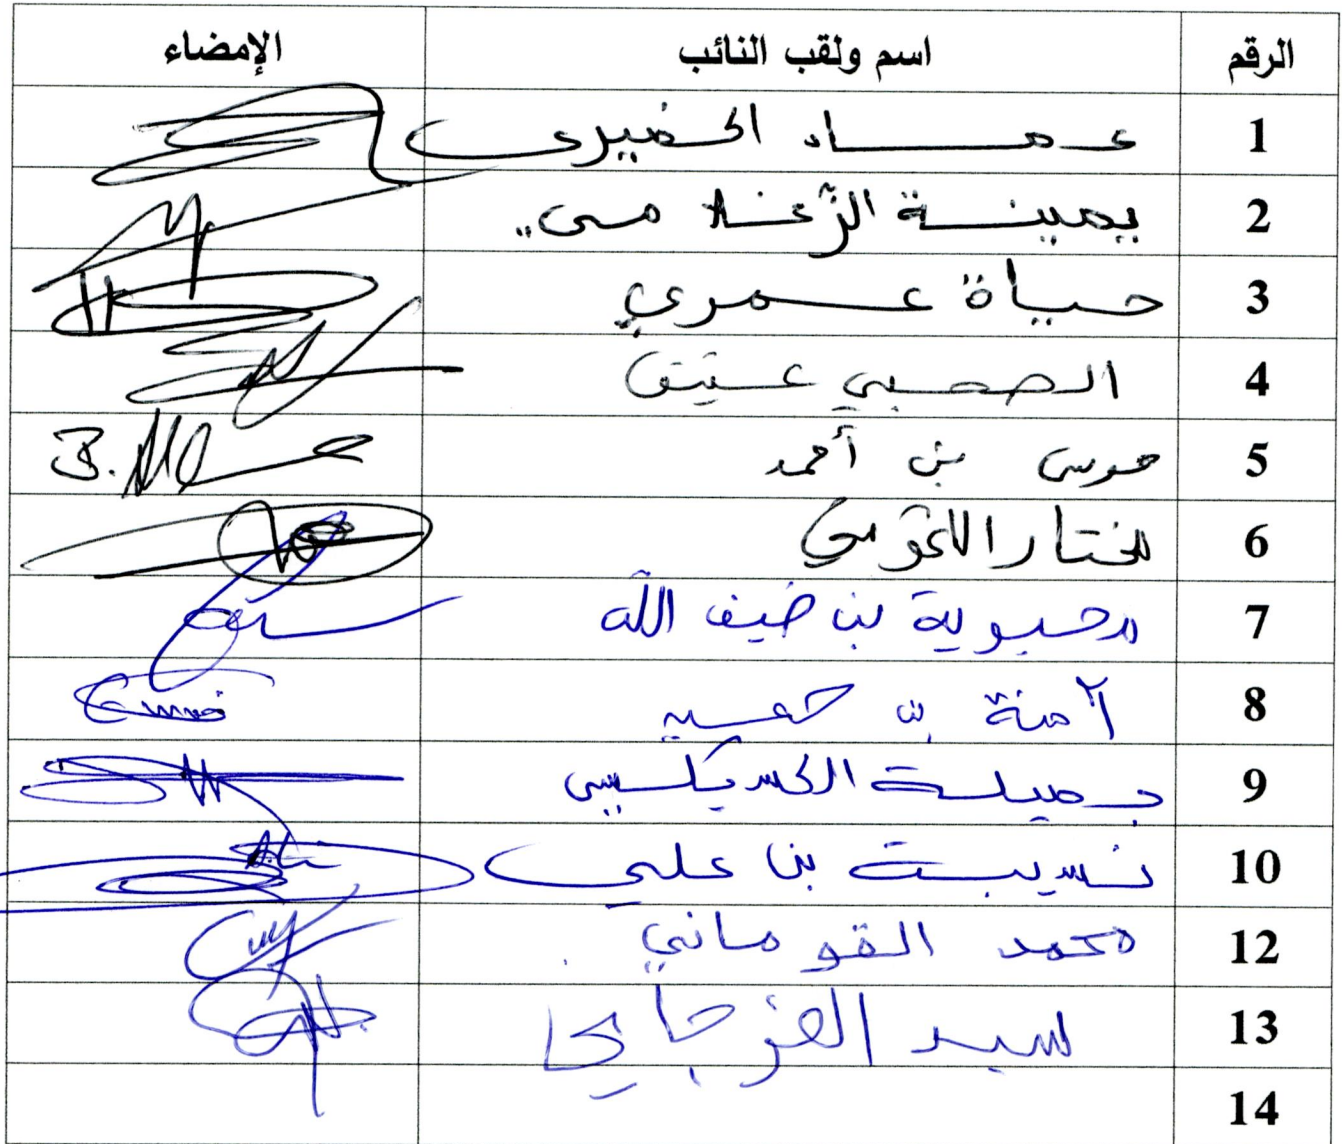 الرقم اسم ولقب النائب الإمضاء
1 عماد الخميري
2 يمينة الزّغلامي
3 حياة عمري
4 الصحبي عتيق
5 موسى بن أحمد B.
6 مختار اللموشي
7 محبوبة بن ضيف الله
8 آمنة بن حميد
9 جميلة الكسيكسي
10 نسيبة بن علي
12 محمد القوماني
13 سيد الفرجاني
14